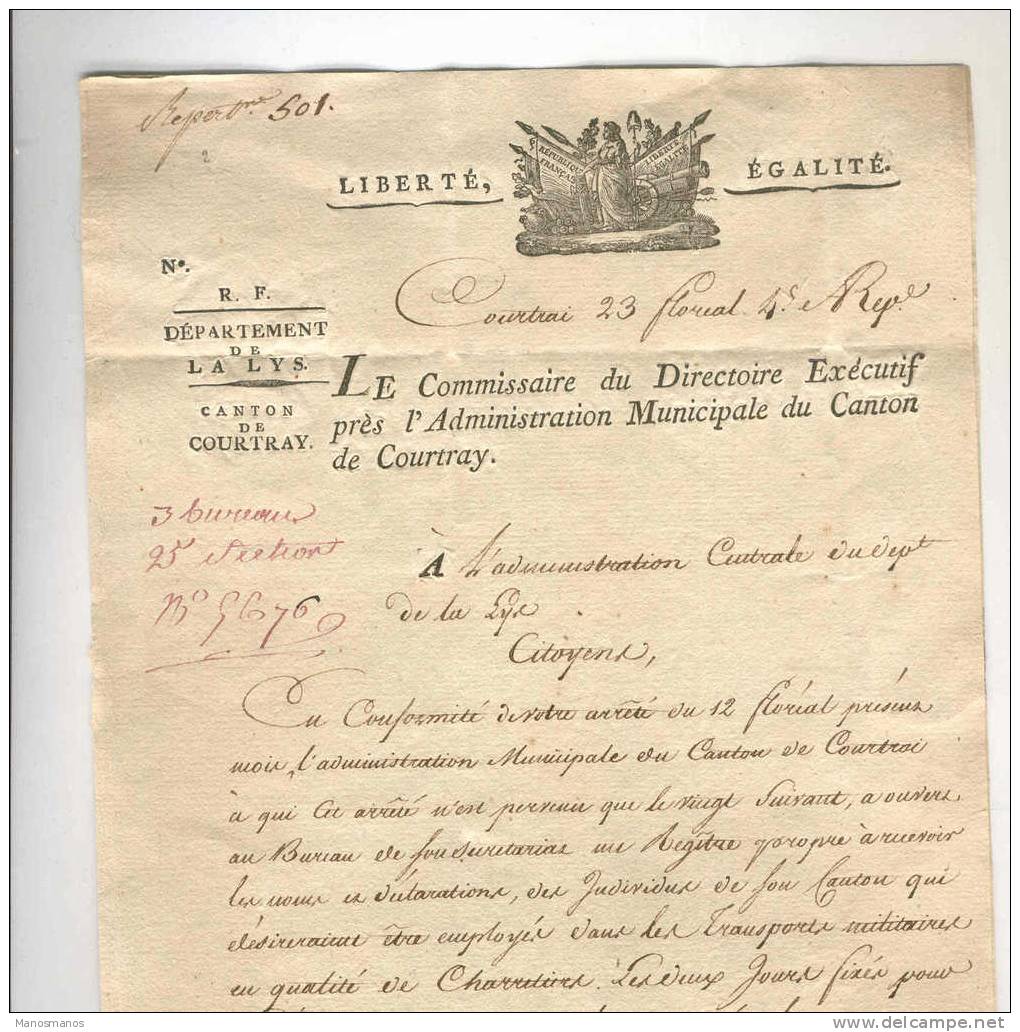 Repert.re 501.
2
LIBERTÉ,
RÉPUBLIQUE
FRANÇAISE
LIBERTÉ
ÉGALITÉ
ÉGALITÉ.
N°.
R. F.
DÉPARTEMENT
DE
LA LYS.
CANTON
DE
COURTRAY.
Courtrai 23 floréal 4e Rep.e
LE Commissaire du Directoire Exécutif
près l'Administration Municipale du Canton
de Courtray.
3 bureau
25 Section
N° 5676
A L'administration Centrale du dept
de la Lys
Citoyens,
En Conformité de votre arrêté du 12 floréal présent
mois, l'administration Municipale du Canton de Courtrai
à qui cet arrêté n'est pervenu que le vingt suivant, a ouvert
au Bureau de son secretariat un Regître propre à recevoir
les noms et déclarations, des Individus de son Canton qui
désireraient être employés dans les Transports militaires
en qualité de Charretiers. Les deux Jours fixés pour
Manosmanos
www.delcampe.net